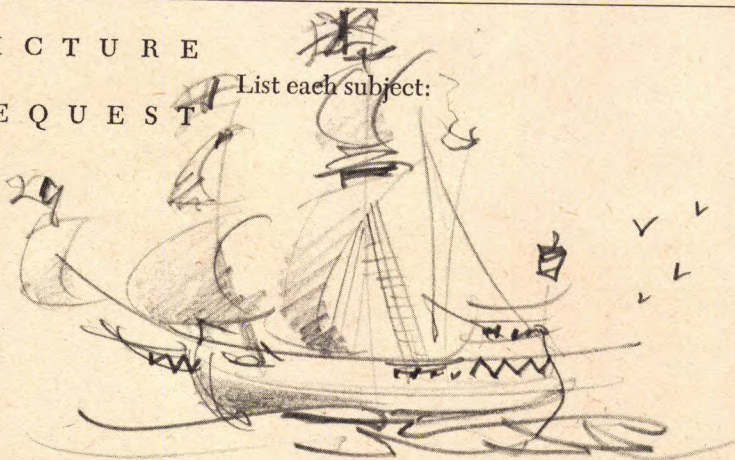 ICTURE
EQUEST
List each subject: